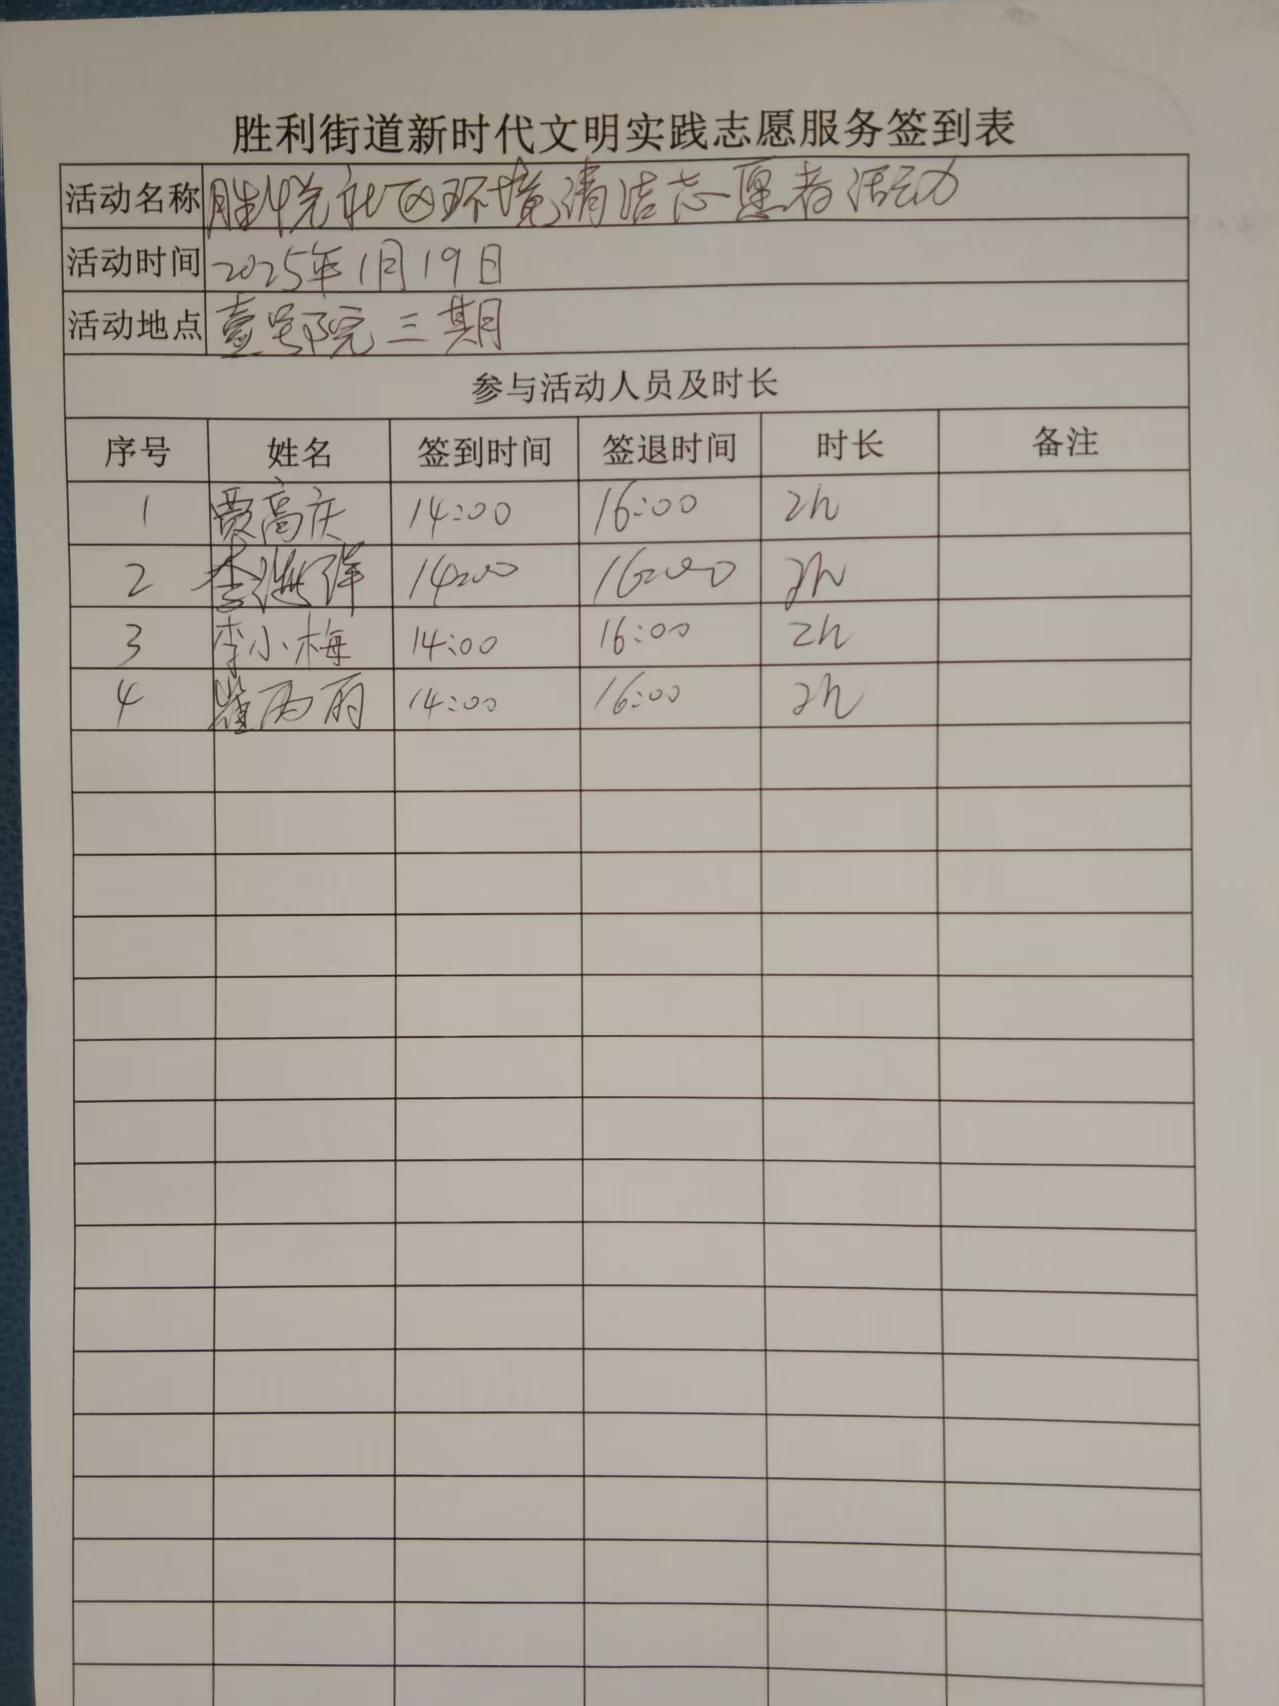 胜利街道新时代文明实践志愿服务签到表
活动名称 胜悦社区环境清洁志愿者活动
活动时间 2025年1月19日
活动地点 壹号院三期
参与活动人员及时长
序号 姓名 签到时间 签退时间 时长 备注
1 贾高庆 14:00 16:00 2h
2 李海洋 14:00 16:00 2h
3 李小梅 14:00 16:00 2h
4 崔丽 14:00 16:00 2h